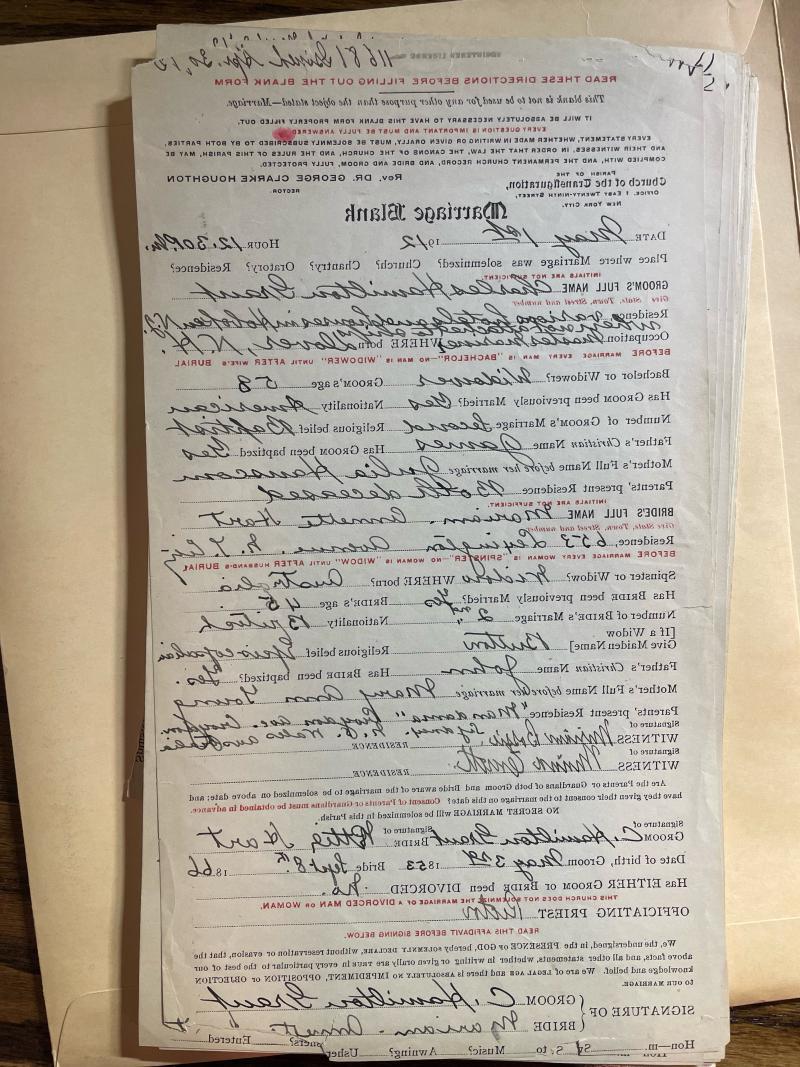 11681 Issued Apr. 30, 12
READ THESE DIRECTIONS BEFORE FILLING OUT THE BLANK FORM
This blank is not to be used for any other purpose than the object stated—Marriage.
IT WILL BE ABSOLUTELY NECESSARY TO HAVE THIS BLANK FORM PROPERLY FILLED OUT.
EVERY QUESTION IS IMPORTANT AND MUST BE FULLY ANSWERED
EVERY STATEMENT, WHETHER MADE IN WRITING OR GIVEN ORALLY, MUST BE SOLEMNLY SUBSCRIBED TO BY BOTH PARTIES,
AND THEIR WITNESSES, IN ORDER THAT THE LAW, THE CANONS OF THE CHURCH, AND THE RULES OF THIS PARISH, MAY BE
COMPLIED WITH, AND THE PERMANENT CHURCH RECORD, AND BRIDE AND GROOM, FULLY PROTECTED.
PARISH OF THE
Church of the Transfiguration,
OFFICE, 1 EAST TWENTY-NINTH STREET,
NEW YORK CITY.
REV. DR. GEORGE CLARKE HOUGHTON
RECTOR
Marriage Blank
DATE May 1st 1912 HOUR 12.30 P.M.
Place where Marriage was solemnized? Church? Chantry? Oratory? Residence?
INITIALS ARE NOT SUFFICIENT.
GROOM'S FULL NAME Charles Hamilton Grant
Give State, Town, Street and number
Residence various hotels houses in Hoboken N.J.
Occupation WHERE born Dover, N.H.
BEFORE MARRIAGE EVERY MAN IS "BACHELOR"—NO MAN IS "WIDOWER" UNTIL AFTER WIFE'S BURIAL
Bachelor or Widower? Widower GROOM'S age 58
Has GROOM been previously Married? Yes Nationality American
Number of GROOM'S Marriage Second Religious belief Baptist
Father's Christian Name James Has GROOM been baptized Yes
Mother's Full Name before her marriage Julia Hanscom
Parents' present Residence Both deceased
INITIALS ARE NOT SUFFICIENT.
BRIDE'S FULL NAME Marian Annette Hart
Give State, Town, Street and number
Residence, 653 Lexington Avenue. N.Y. City
BEFORE MARRIAGE EVERY WOMAN IS "SPINSTER"—NO WOMAN IS "WIDOW" UNTIL AFTER HUSBAND'S BURIAL
Spinster or Widow? Widow WHERE born? Australia
Has BRIDE been previously Married? Yes BRIDE'S age 45
Number of BRIDE'S Marriage 2nd Nationality British
[If a Widow
Give Maiden Name] Button Religious belief Episcopalian
Father's Christian Name John Has BRIDE been baptized? Yes.
Mother's Full Name before her marriage Mary Ann Young
Parents' present Residence "Mandama" Croydon Ave. Croydon
Sydney, N.S. Wales Australia
Signature of
WITNESS RESIDENCE
Signature of
WITNESS RESIDENCE
Are the Parents or Guardians of both Groom and Bride aware of the marriage to be solemnized on above date; and
have they given their consent to the marriage on this date? Consent of Parents or Guardians must be obtained in advance.
NO SECRET MARRIAGE will be solemnized in this Parish.
Signature of
GROOM C. Hamilton Grant Signature of BRIDE Hart
Date of birth, Groom May 3rd 1853 Bride Sept 8th 1866
Has EITHER GROOM or BRIDE been DIVORCED No.
THIS CHURCH DOES NOT SOLEMNIZE THE MARRIAGE OF A DIVORCED MAN OR WOMAN.
OFFICIATING PRIEST
READ THIS AFFIDAVIT BEFORE SIGNING BELOW.
We, the undersigned, in the PRESENCE OF GOD, hereby SOLEMNLY DECLARE, without reservation or evasion, that the
above facts, and all other statements, whether in writing or given orally are TRUE in every particular to the best of our
knowledge and belief. We are of LEGAL AGE and there is ABSOLUTELY NO IMPEDIMENT, OPPOSITION OR OBJECTION
TO OUR MARRIAGE.
SIGNATURE OF
GROOM C. Hamilton Grant
BRIDE Marian Annett
Hon—m. S. to. Music? Awning? Usher Entered